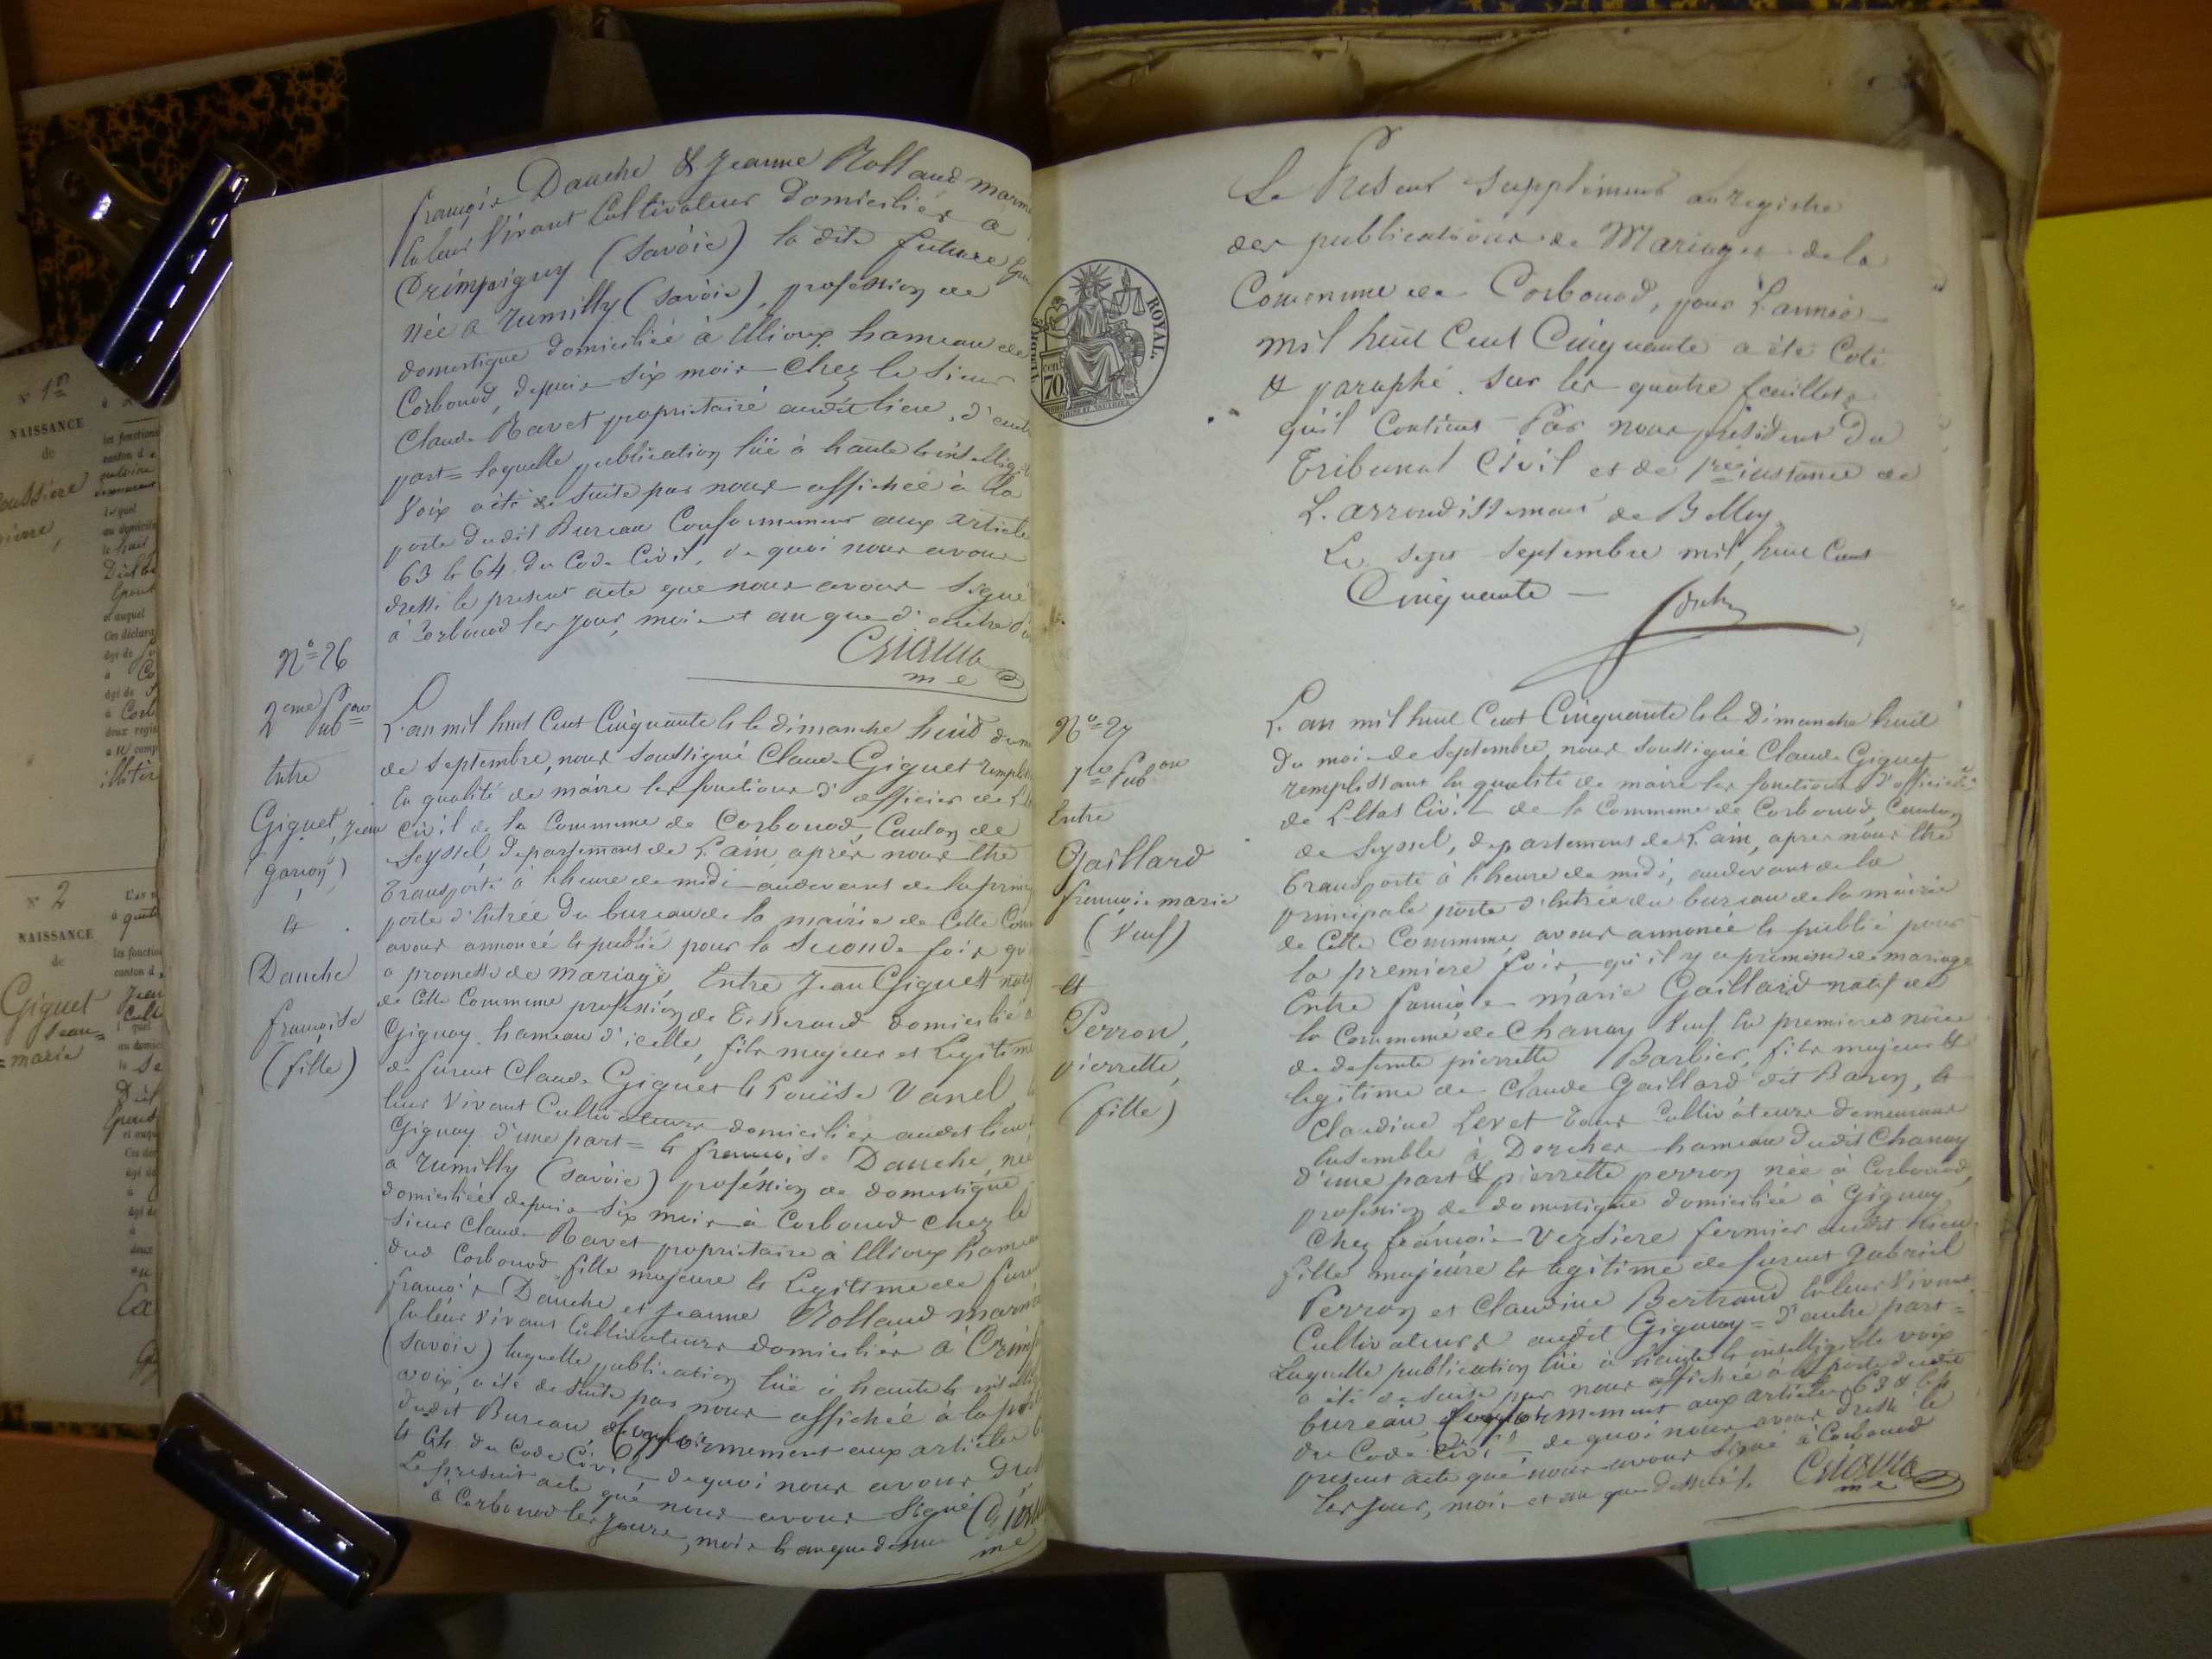 françois Danche & Jeanne Rolland mariés
la leur Vivant Cultivateurs domiciliés à
Crémpigny (Savoie) la dite future
Née à Rumilly (Savoie), profession de
domestique domiciliée à Ellioux hameau de
Corbonod, depuis six mois chez le Sieur
Claude Ravet propriétaire audit lieu, d'autre
part = laquelle publication lüe à haute & intelligible
Voix a été de suite par nous affichée à la
porte dudit Bureau Conformement aux article
63 & 64 du Code Civil, de quoi nous avons
dressé le present acte que nous avons signé
à Corbonod les jour, mois et an que d'autre
N° 26
2eme Pubon
Entre
Giguet, Jean
garçon)
&
Danche
françoise
(fille)
L'an mil huit Cent Cinquante & le dimanche huit du
de Septembre, nous soussigné Claude Giguet
la qualité de maire les fonctions d'officier de
Civil de la Commune de Corbonod, Canton de
Seyssel, departement de L'ain, après nous être
Transporté à l'heure de midi audevant de la
porte d'Entrée du bureau de la mairie de Cette
avons annoncé & publié pour la Seconde fois
a promesse de mariage, Entre Jean Giguet
de Cette Commune profession de Tisserand domicilié
Gignay hameau d'icelle, fils majeur et Légitime
de furent Claude Giguet & Louïse Vanel
leur Vivant Cultivateurs domiciliés audit lieu
Gignay d'une part = & françoise Danche, née
à Rumilly (Savoie) profession de domestique
domiciliée depuis six mois à Corbonod chez le
Sieur Claude Ravet propriétaire à Ellioux
dud Corbonod fille majeure & Légitime de
françois Danche et Jeanne Rolland
la leur Vivant Cultivateurs domiciliés à
(Savoie) laquelle publication lüe à haute &
voix, a été de suite par nous affichée à la
dudit Bureau, Conformement aux articles
& 64 du Code Civil, de quoi nous avons
Le present acte que nous avons signé
à Corbonod les jours, mois & an que dessus
TIMBRE ROYAL.
70
Le Présent Supplément au registre
des publications de Mariages de la
Commune de Corbonod, pour L'année
mil huit Cent Cinquante a été Coté
& paraphé sur les quatre feuillets
qu'il Contient Par nous président du
Tribunal Civil et de 1ere instance de
L'arrondissement de Belley
Le sept Septembre mil, huit Cent
Cinquante
N° 27
1ere Pubon
Entre
Gaillard
françois marie
(Veuf)
et
Perron,
pierrette,
(fille)
L'an mil huit Cent Cinquante & le Dimanche huit
du mois de Septembre, nous soussigné Claude Giguet
remplissant la qualité de maire les fonctions d'officier
de L'Etat Civil de la Commune de Corbonod, Canton
de Seyssel, departement de L'ain, après nous être
Transporté à l'heure de midi, audevant de la
principale porte d'Entrée du bureau de la mairie
de Cette Commune, avons annoncé & publié pour
la premiere fois, qu'il y a promesse de mariage
Entre françois marie Gaillard natif de
la Commune de Chanay Veuf En premieres noces
de defunte pierrette Barbier, fils majeur &
legitime de Claude Gaillard dit Baron, &
Claudine Levet Tous Cultivateurs demeurant
Ensemble à Dorches hameau dudit Chanay
d'une part & pierrette perron née à Corbonod,
profession de domestique domiciliée à Gignay
Chez françois Veysiere fermier audit lieu
fille majeure & légitime de furent gabriel
Perron et Claudine Bertrand la leur Vivant
Cultivateurs audit Gignay = d'autre part =
Laquelle publication lüe à haute & intelligible voix
a été de suite par nous affichée à la porte dudit
bureau Conformement aux articles 63 & 64
du Code Civil de quoi nous avons dressé le
present acte que nous avons signé à Corbonod
les jour, mois et an que dessus
N° 1er
NAISSANCE
de
N° 2
NAISSANCE
de
Giguet
Jean=
=marie